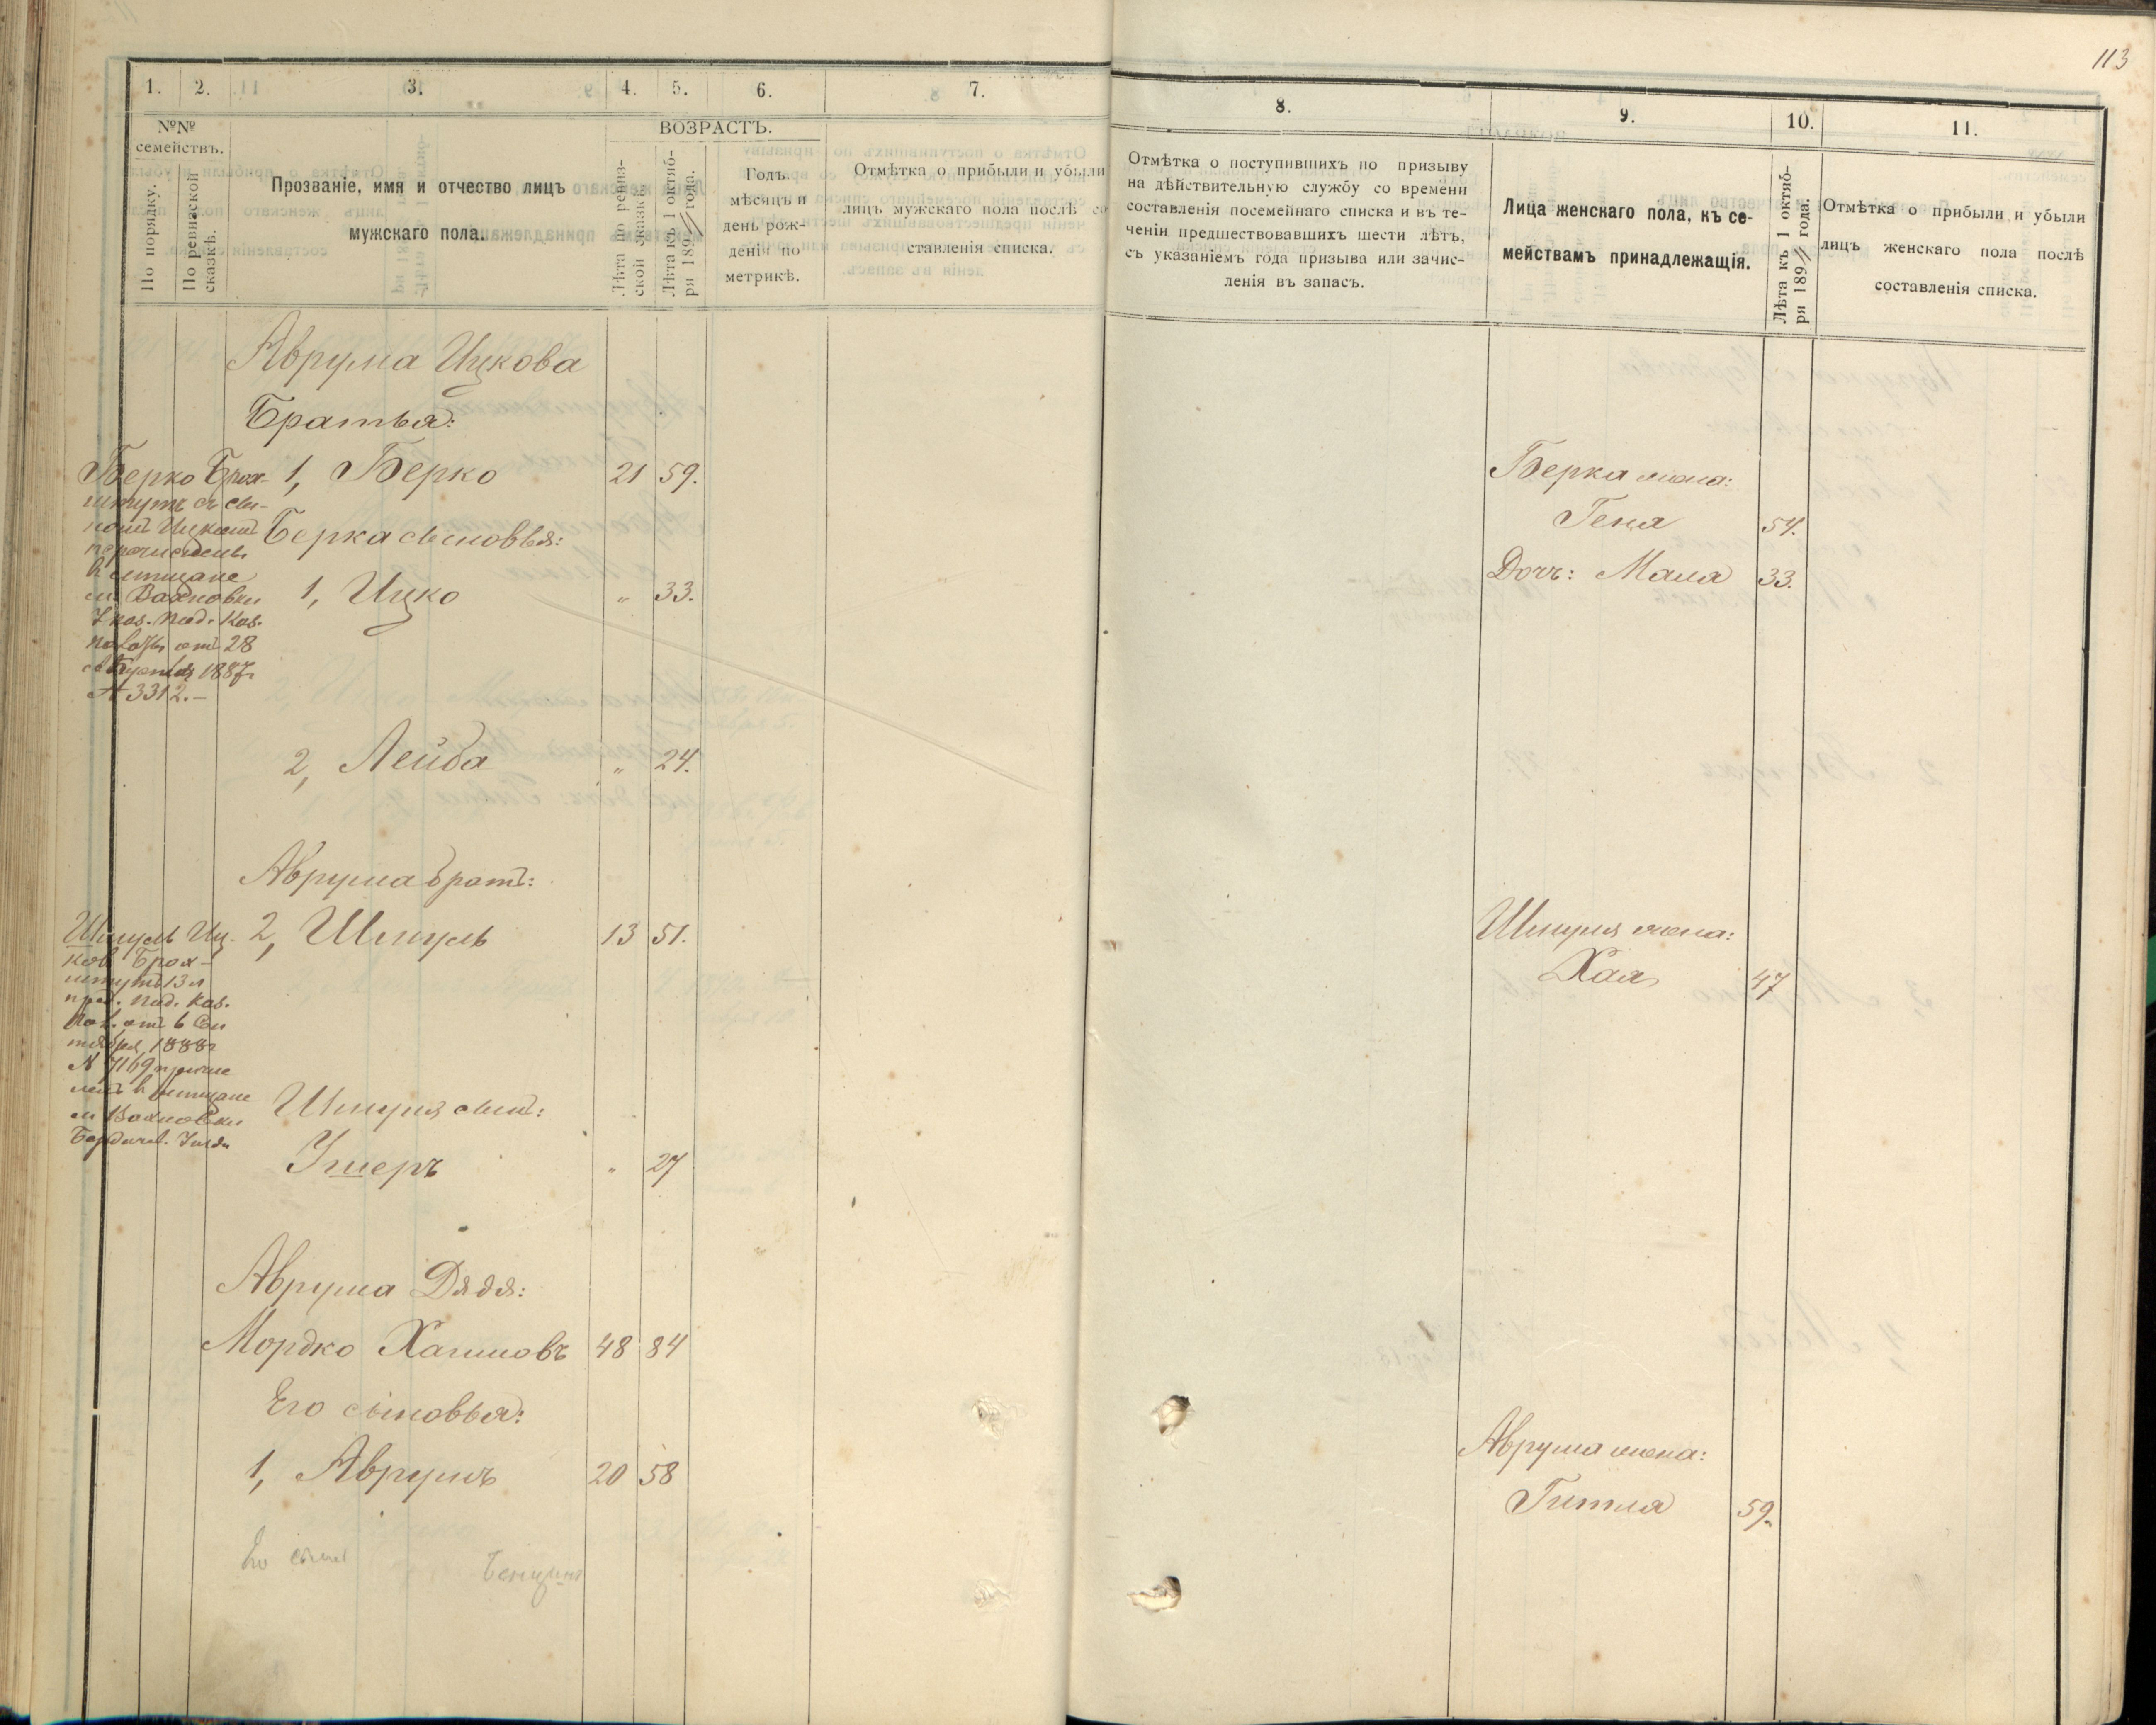 113
1. 2. 3. 4. 5. 6. 7.
№№ семействъ.
По порядку.
По ревизской сказкѣ.
Прозваніе, имя и отчество лицъ
мужскаго пола.
ВОЗРАСТЪ.
Лѣта по ревиз-
ской сказкѣ.
Лѣта къ 1 октяб-
ря 189 года.
Годъ,
мѣсяцъ и
день рож-
денія по
метрикѣ.
Отмѣтка о прибыли и убыли
лицъ мужскаго пола послѣ со
ставленія списка.
8. 9. 10. 11.
Отмѣтка о поступившихъ по призыву
на дѣйствительную службу со времени
составленія посемейнаго списка и въ те-
ченіи предшествовавшихъ шести лѣтъ,
съ указаніемъ года призыва или зачис-
ленія въ запасъ.
Лица женскаго пола, къ се-
мействамъ принадлежащія.
Лѣта къ 1 октяб-
ря 189 года.
Отмѣтка о прибыли и убыли
лицъ женскаго пола послѣ
составленія списка.
Аврума Ицкова
Братья:
1, Берко 21 59.
Берка сыновья:
1, Ицко " 33.
2, Лейба " 24.
Аврума братъ:
2, Шмуль 13 51.
Шмуля сынъ:
Ушеръ " 27
Аврума Дядя:
Мордко Хаимовъ 48 84
Его сыновья:
1, Аврумъ 20 58
Его сынъ
Берко Брох-
штутъ съ сы-
номъ Ицкомъ
перечислены
в мещане
м Вахновки
Каз. Под. Каз.
Палаты отъ 28
1887г
№ 3312.-
Шмуль Иц-
ков Брох-
штутъ 13 л
пред. Под. Каз.
Пал. отъ 6 Сен
тября 1888г
№ 7169 причис
ленъ в мещане
м Вахновки
Бердичев. Уезда
Берка жена:
Геня 54.
Дочь: Мала 33.
Шмуля жена:
Хая 47
Аврума жена:
Гитля 59.